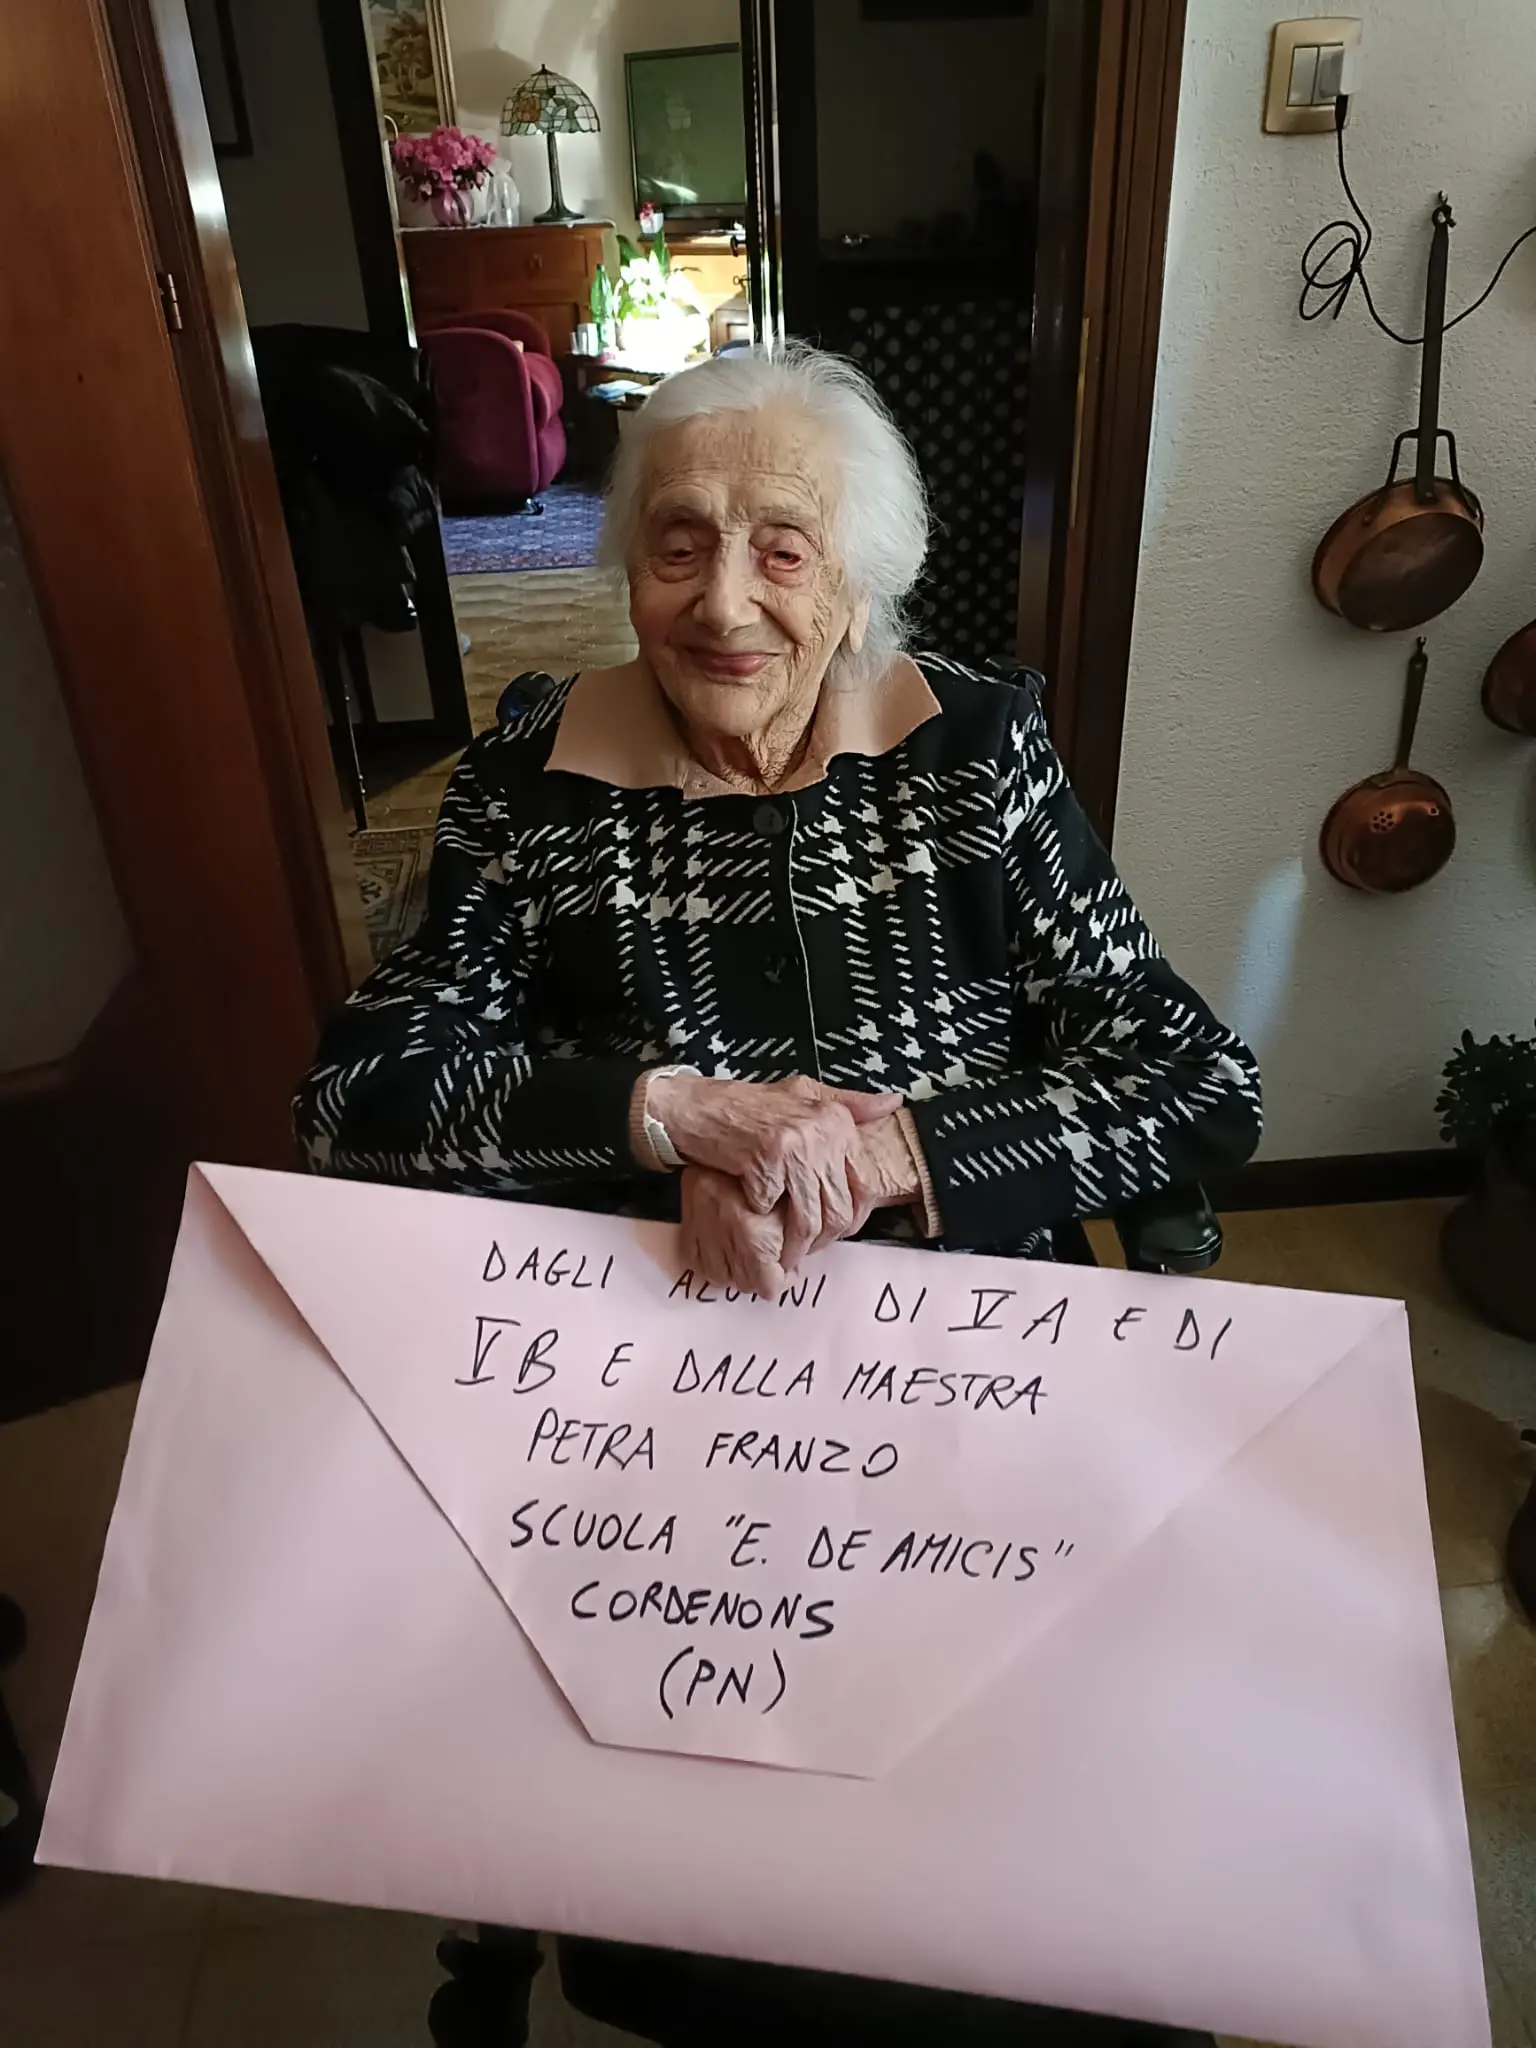 DAGLI ALUNNI DI V A E DI
V B E DALLA MAESTRA
PETRA FRANZO
SCUOLA "E. DE AMICIS"
CORDENONS
(PN)